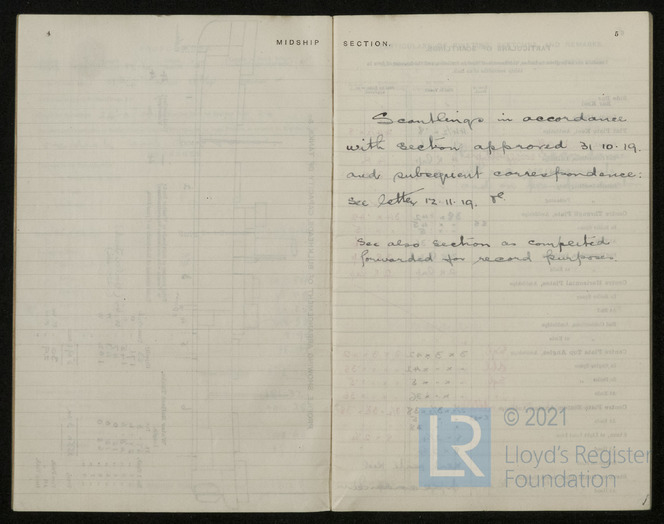 4
MIDSHIP SECTION.
5
Scantlings in accordance
with section approved 31·10·19.
and subsequent correspondance:
see letter 12·11·19.
See also section as completed
forwarded for record purposes.
© 2021
LR
Lloyd's Register
Foundation